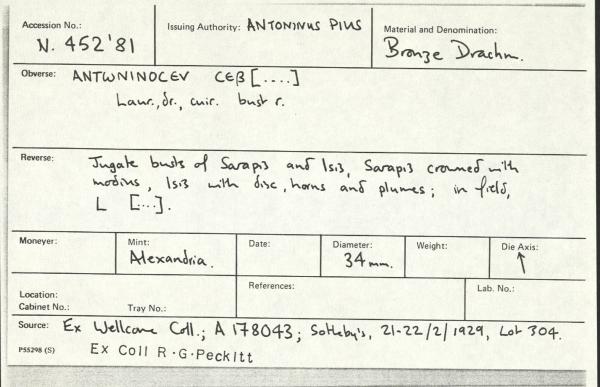 Accession No.: N. 452'81
Issuing Authority: ANTONINUS PIUS
Material and Denomination: Bronze Drachm.
Obverse: ANTωNINOCEV CEβ [....]
Laur., dr., cuir. bust r.
Reverse: Jugate busts of Sarapis and Isis, Sarapis crowned with
modius, Isis with disc, horns and plumes; in field,
L [...].
Moneyer:
Mint: Alexandria.
Date:
Diameter: 34 mm.
Weight:
Die Axis: ↑
Location:
Cabinet No.: Tray No.:
References:
Lab. No.:
Source: Ex Wellcome Coll.; A 178043; Sotheby's, 21-22/2/1929, Lot 304.
P55298 (S) Ex Coll R.G.Peckitt